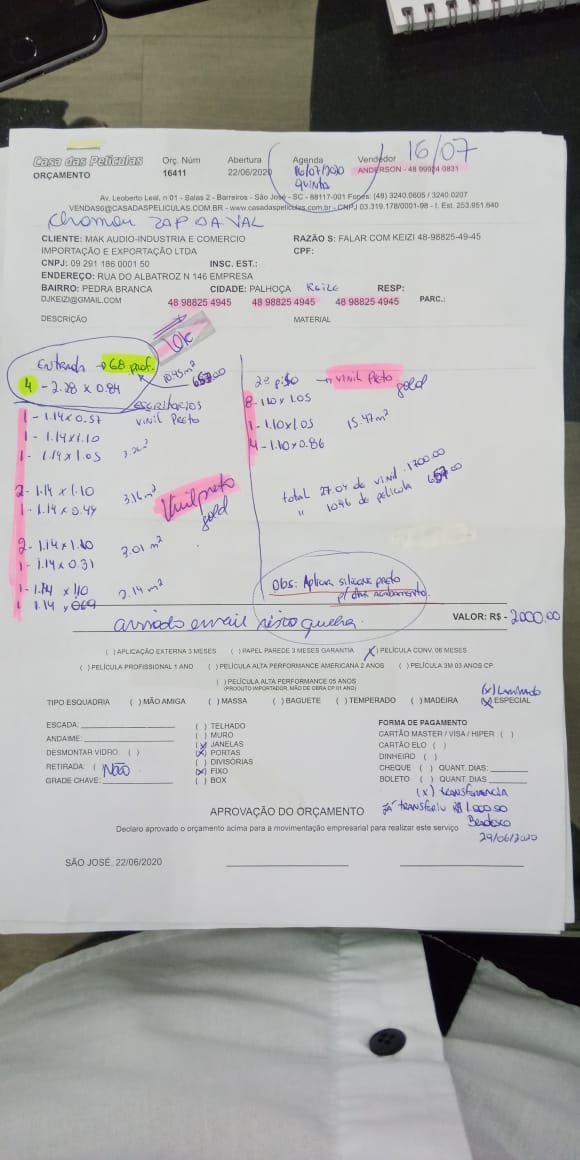 16/07
Casa das Películas Orç. Núm Abertura Agenda Vendedor
ORÇAMENTO 16411 22/06/2020 16/07/2020 ANDERSON - 48 99924 0831
quinta
Av. Leoberto Leal, n 01 - Salas 2 - Barreiros - São José - SC - 88117-001 Fones: (48) 3240.0605 / 3240.0207
VENDAS6@CASADASPELICULAS.COM.BR - www.casadaspeliculas.com.br - CNPJ 03.319.178/0001-98 - I. Est. 253.951.640
chamou ZAP DA VAL
CLIENTE: MAK AUDIO-INDUSTRIA E COMERCIO RAZÃO S: FALAR COM KEIZI 48-98825-49-45
IMPORTAÇÃO E EXPORTAÇÃO LTDA CPF:
CNPJ: 09 291 186 0001 50 INSC. EST.:
ENDEREÇO: RUA DO ALBATROZ N 146 EMPRESA
BAIRRO: PEDRA BRANCA CIDADE: PALHOÇA RESP:
DJKEIZI@GMAIL.COM 48 98825 4945 48 98825 4945 48 98825 4945 PARC.:
DESCRIÇÃO MATERIAL
OK
Entrada → G8 prof.
4 - 2.28 x 0.84
escritorios
vinil Preto
1 - 1.14 x 0.57
1 - 1.14 x 1.10
1 - 1.14 x 1.05
2 - 1.14 x 1.10 3.16 m²
1 - 1.14 x 0.44
Vinil preto
gold
2 - 1.14 x 1.10 3.01 m²
1 - 1.14 x 0.31
1 - 1.14 x 1.10 2.14 m²
1 1.14 x 069
2º piso → vinil Preto
gold
8 - 1.10 x 1.05
1 - 1.10 x 1.05 15.47 m²
4 - 1.10 x 0.86
total 27.04 de vinil 1700.00
" 1046 de pelicula
Obs: Aplicar silicone preto
p/ dar acabamento.
VALOR: R$ - 2000.00
( ) APLICAÇÃO EXTERNA 3 MESES ( ) PAPEL PAREDE 3 MESES GARANTIA (X) PELÍCULA CONV. 06 MESES
( ) PELÍCULA PROFISSIONAL 1 ANO ( ) PELÍCULA ALTA PERFORMANCE AMERICANA 2 ANOS ( ) PELÍCULA 3M 03 ANOS CP
( ) PELÍCULA ALTA PERFORMANCE 05 ANOS
(PRODUTO IMPORTADOR, MÃO DE OBRA CP 01 ANO)
(x) Laminado
TIPO ESQUADRIA ( ) MÃO AMIGA ( ) MASSA ( ) BAGUETE ( ) TEMPERADO ( ) MADEIRA (X) ESPECIAL
ESCADA:
ANDAIME:
DESMONTAR VIDRO: ( )
RETIRADA: ( ) NÃO
GRADE CHAVE:
( ) TELHADO
( ) MURO
(X) JANELAS
(X) PORTAS
( ) DIVISÓRIAS
(X) FIXO
( ) BOX
FORMA DE PAGAMENTO
CARTÃO MASTER / VISA / HIPER ( )
CARTÃO ELO ( )
DINHEIRO ( )
CHEQUE ( ) QUANT. DIAS:
BOLETO ( ) QUANT. DIAS
(X) transferencia
Já transferiu R$ 1.000.00
Bradesco
29/06/2020
APROVAÇÃO DO ORÇAMENTO
Declaro aprovado o orçamento acima para a movimentação empresarial para realizar este serviço
SÃO JOSÉ, 22/06/2020